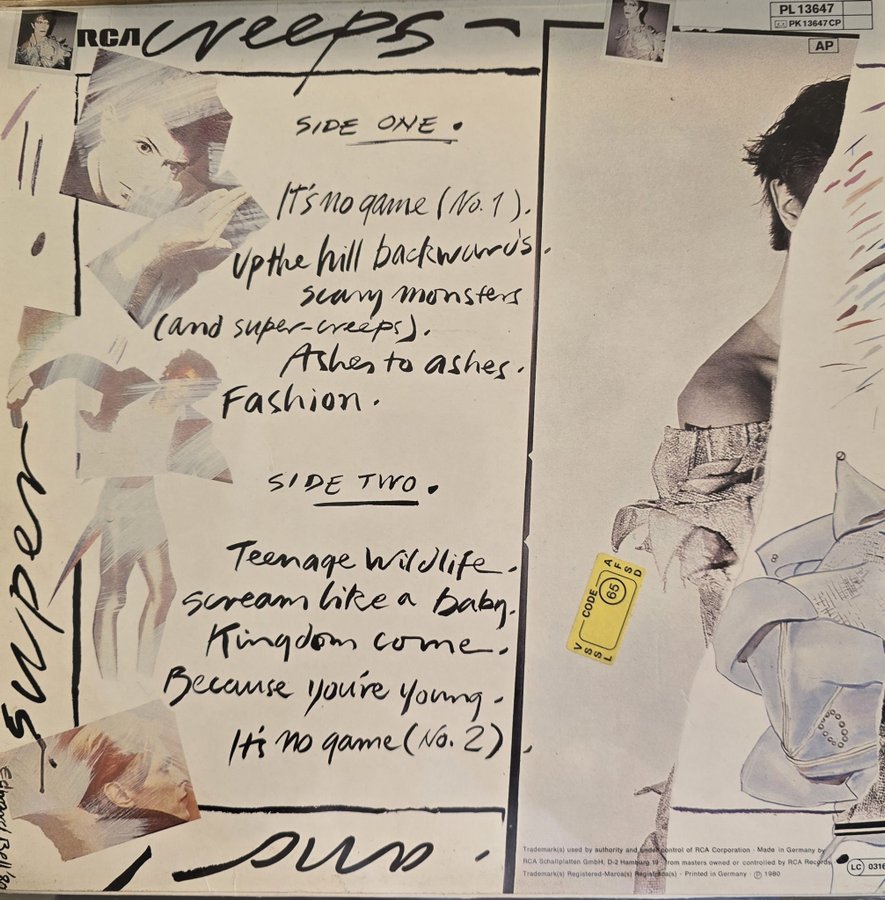 RCA creeps
PL 13647
PK 13647 CP
AP
SIDE ONE.
It's no game (No. 1).
Up the hill backwards.
scary monsters
(and super-creeps).
Ashes to ashes.
Fashion.
SIDE TWO.
Teenage Wildlife.
scream like a baby.
Kingdom come.
Because you're young.
It's no game (No. 2).
super
and
Edward Bell '80
A F S D
CODE 65
V S S L
Trademark(s) used by authority and under control of RCA Corporation · Made in Germany by
RCA Schallplatten GmbH, D-2 Hamburg 19 · from masters owned or controlled by RCA Records
Trademark(s) Registered-Marca(s) Registrada(s) · Printed in Germany · Ⓟ 1980
LC 0316